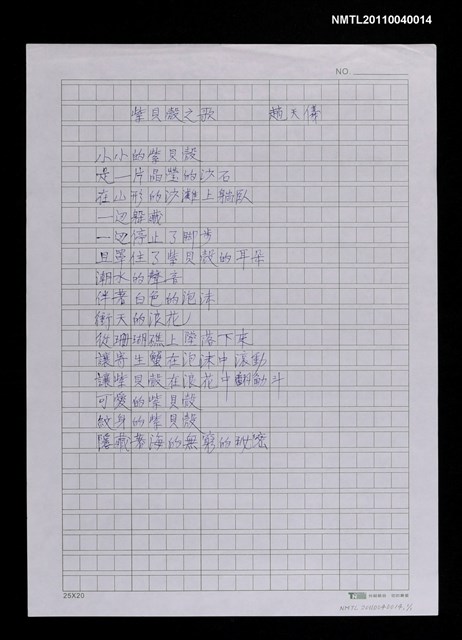 NMTL20110040014
NO.
紫貝殼之歌 趙天儀
小小的紫貝殼
是一片晶瑩的沙石
在山形的沙灘上躺臥
一边躲藏
一边停止了脚步
且罩住了紫貝殼的耳朵
潮水的聲音
伴著白色的泡沫
衝天的浪花
從珊瑚礁上墜落下來
讓寄生蟹在泡沫中滾動
讓紫貝殼在浪花中翻動斗
可愛的紫貝殼
紋身的紫貝殼
隱藏著海的無窮的秘密
25X20
NMTL 20110040014